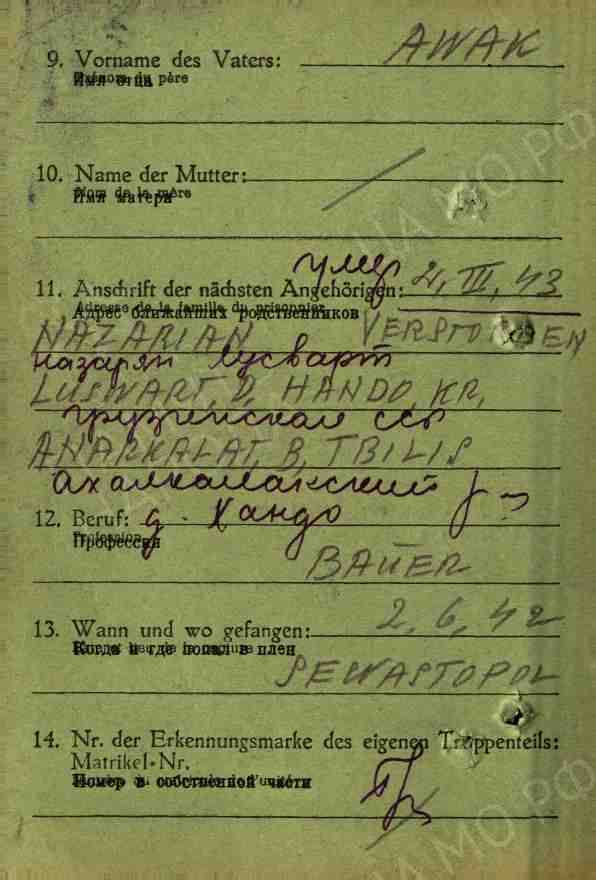 9. Vorname des Vaters: AWAK
Prénom du père
Имя отца
10. Name der Mutter:
Nom de la mère
Имя матери
умер
11. Anschrift der nächsten Angehörigen: III, 43
Adresse de la famille du prisonnier
Адрес ближайших родственников
NAZARIAN
назарян Лусварт
LUSWART, D, HANDO, KR,
грузинская сср
ANARKALAT, B, TBILIS
ахалкалакский
12. Beruf: д. Хандо
Profession
Профессия
BAUER
13. Wann und wo gefangen: 2, 6, 42
Когда и где попал в плен
SEWASTOPOL
14. Nr. der Erkennungsmarke des eigenen Truppenteils:
Matrikel-Nr.
Номер в собственной части
ЦА МО РФ
ЦА МО РФ